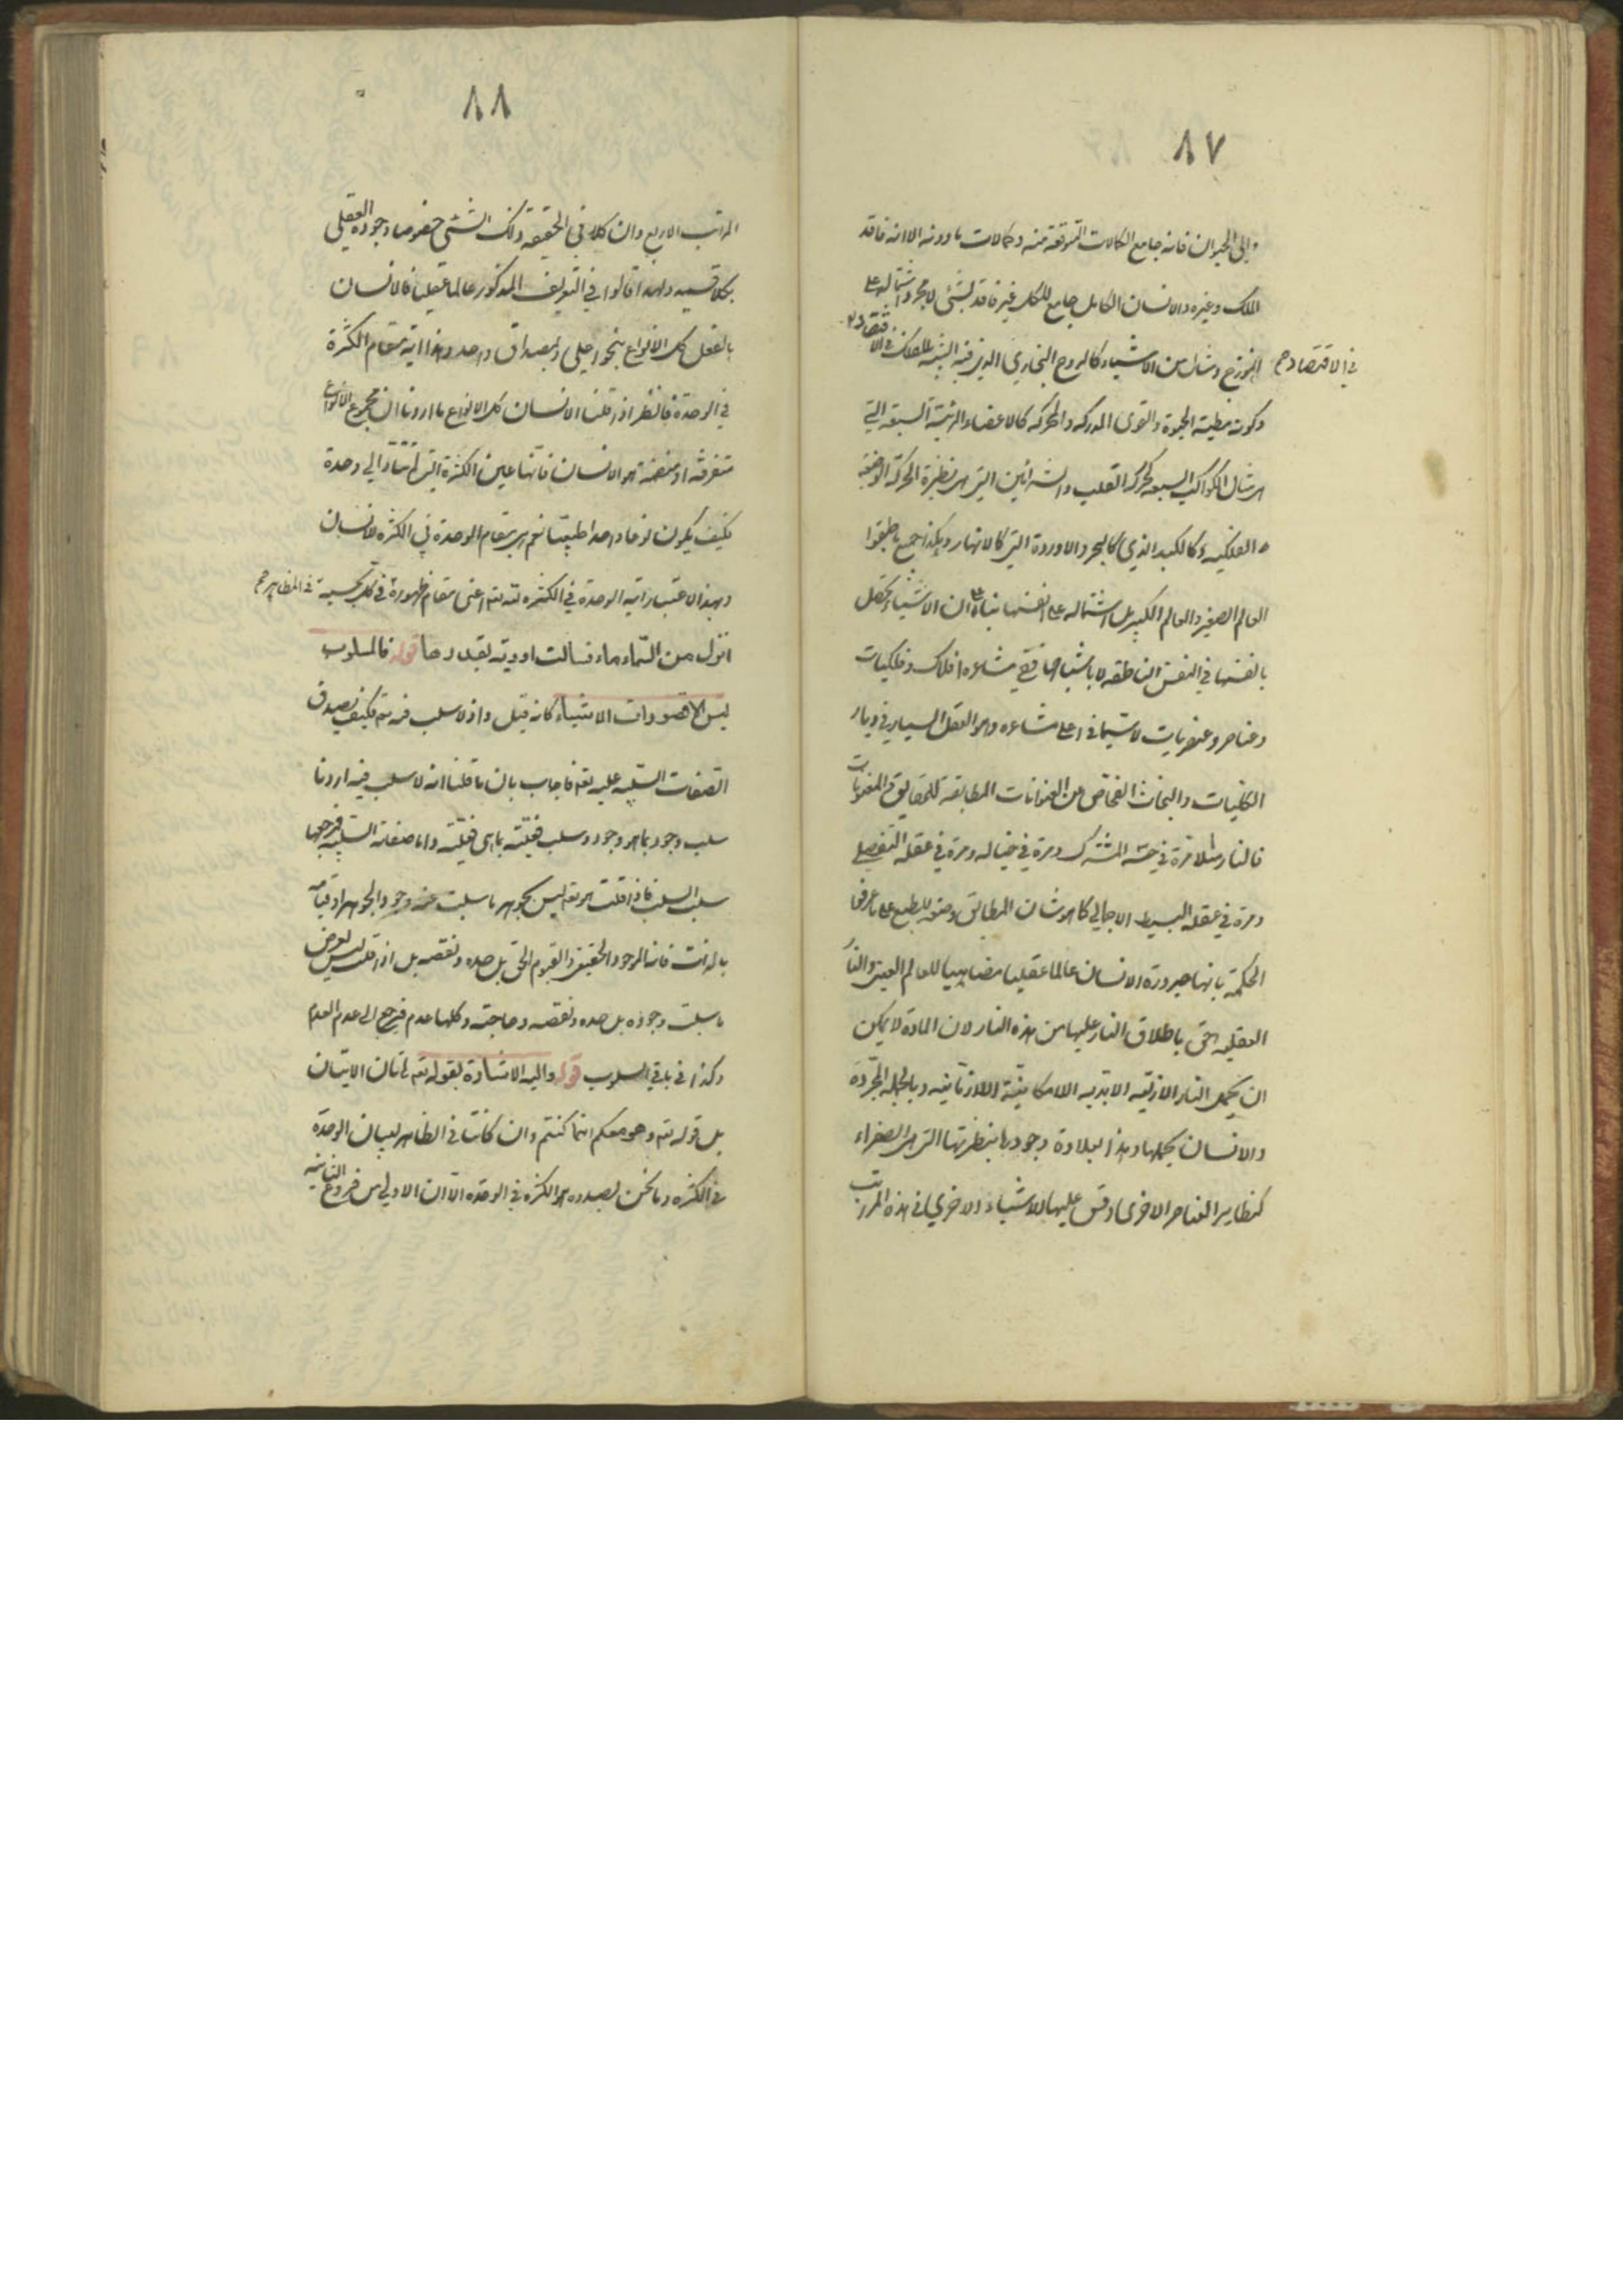 ٨٧
والى الحيوان فانه جامع الكمالات المتوقعة منه وكمالات مادونه الا انه فاقد
الملك وغيره والانسان الكامل جامع للكل غير فاقد لشئ لا لمجرد اشتماله على
انموزج ومثال من الاشياء كالروح البخاري الذي فيه الشبيه للفلاك في الاقتصاد
في الاقتصاد
وكونه مطية الحيوة والقوى المدركه والمحركه كالاعضاء الرئيسة السبعه التي
هي مثال الكواكب السبعه كحركة القلب والشرائين التي هي نظيرة الحركة الوضعية
الفلكيه وكالكبد الذي كالبحر والاوردة التي كالانهار وهكذا جميع ما طبقوا
العالم الصغير والعالم الكبير بل اشتماله على انفسها بناء على ان الاشياء تحصل
بانفسها في النفس الناطقه لا باشباحها ففي مشاعره افلاك وفلكيات
وعناصر وعنصريات لا سيما في اعلى مشاعره وهو العقل السيار في ديار
الكليات والبحاث الفحاص عن العنوانات المطابقه للحقايق والمعنونات
فالنار مثلا مرة في حسه المشترك ومرة في خياله ومرة في عقله التفصيلي
ومرة في عقله البسيط الاجمالي كما هو شان المطابق وضعه للطبع على ما عرفوا
الحكمة بانها صيرورة الانسان عالما عقليا مضاهيا للعالم العيني والنار
العقليه احق باطلاق النار عليها من هذه النار لان المادة لا يمكن
ان يحمل النار الازليه الابديه اللامكانية اللازمانيه وبالجمله المجردة
والانسان يحملها وهذا بعلاوة وجودها بنظيرتها التي هي الصفراء
كنظاير العناصر الاخرى وقس عليها الاشياء الاخرى في هذه المراتب
٨٨
المراتب الاربع وان كلا في الحقيقه ذلك الشئ خصوصا وجوده العقلي
بكلا قسميه ولهذا قالوا في التعريف المذكور عالما عقليا فالانسان
بالفعل كل الانواع بنحو اعلى وبمصداق واحد وهذا اية مقام الكثرة
في الوحدة فانظر اذا قلنا الانسان كل الانواع ما اردنا ان مجموع الانواع
متفرقة او منضمة هو الانسان فانها عين الكثرة التي لم تتأد الى وحدة
فكيف يكون نوعا واحدا طبيعيا نعم هي مقام الوحدة في الكثرة للانسان
وبهذا الاعتبار اية الوحدة في الكثره لله تعم اعني مقام ظهوره في كل بحسبه في المظاهر
انزل من السماء ماء فسالت اودية بقدرها قوله فالمسلوب
ليس الا قصورات الاشياء كانه قيل واذ لا سلب فيه تعم فكيف يصدق
الصفات السلبيه عليه تعم فاجاب بان ما قلنا انه لا سلب فيه اردنا
سلب وجود بما هو وجود وسلب فعلية بما هي فعلية واما صفاته السلبيه فمرجعها
سلب السلب فاذا قلت هو تعم ليس بجوهر ما سلبت عنه وجود الجوهر او قيامه
بالذات فانه الموجود الحقيقي والقيوم الحق بل حده ونقصه بل اذا قلت ليس بعرض
ما سلبت وجوده بل حده ونقصه وحاجته وكلها عدم فيرجع الى عدم العدم
وكذا في باقي السلوب قوله واليه الاشارة بقوله تعم هاتان الايتان
بل قوله تعم وهو معكم اينما كنتم وان كانتا في الظاهر لبيان الوحدة
في الكثره وما نحن بصدده هو الكثره في الوحده الا ان الاولى من فروع الثانيه